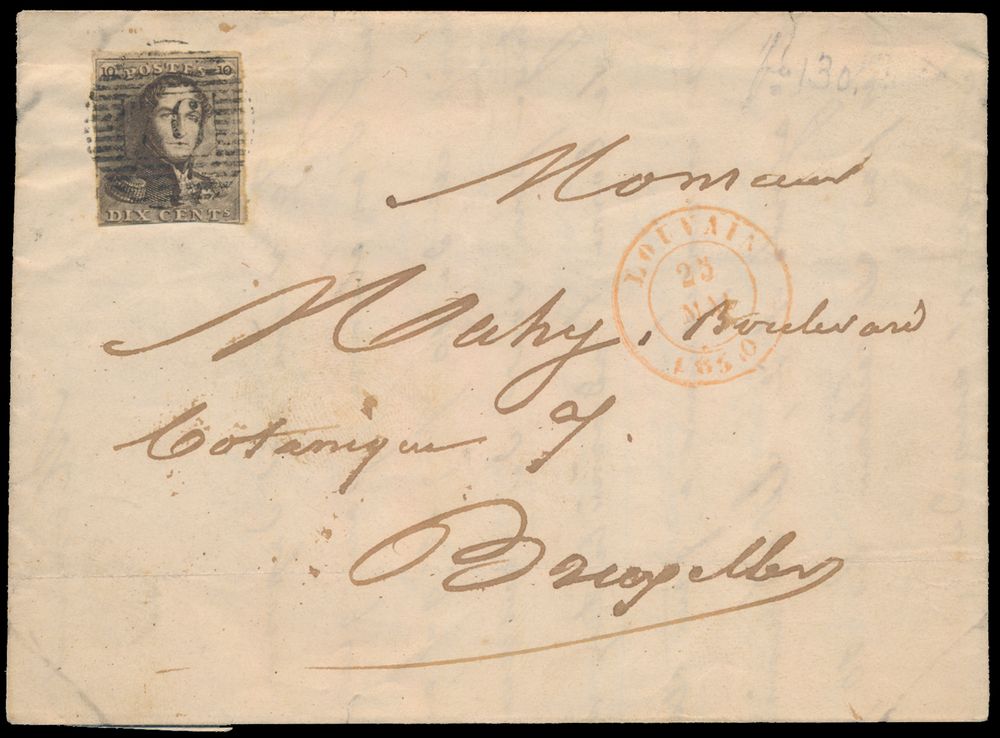 10 POSTES 10
DIX CENTS
130.
Monsieur
LOUVAIN
25
MAI
1850
Mahy, Boulevard
Botanique 7.
Bruxelles